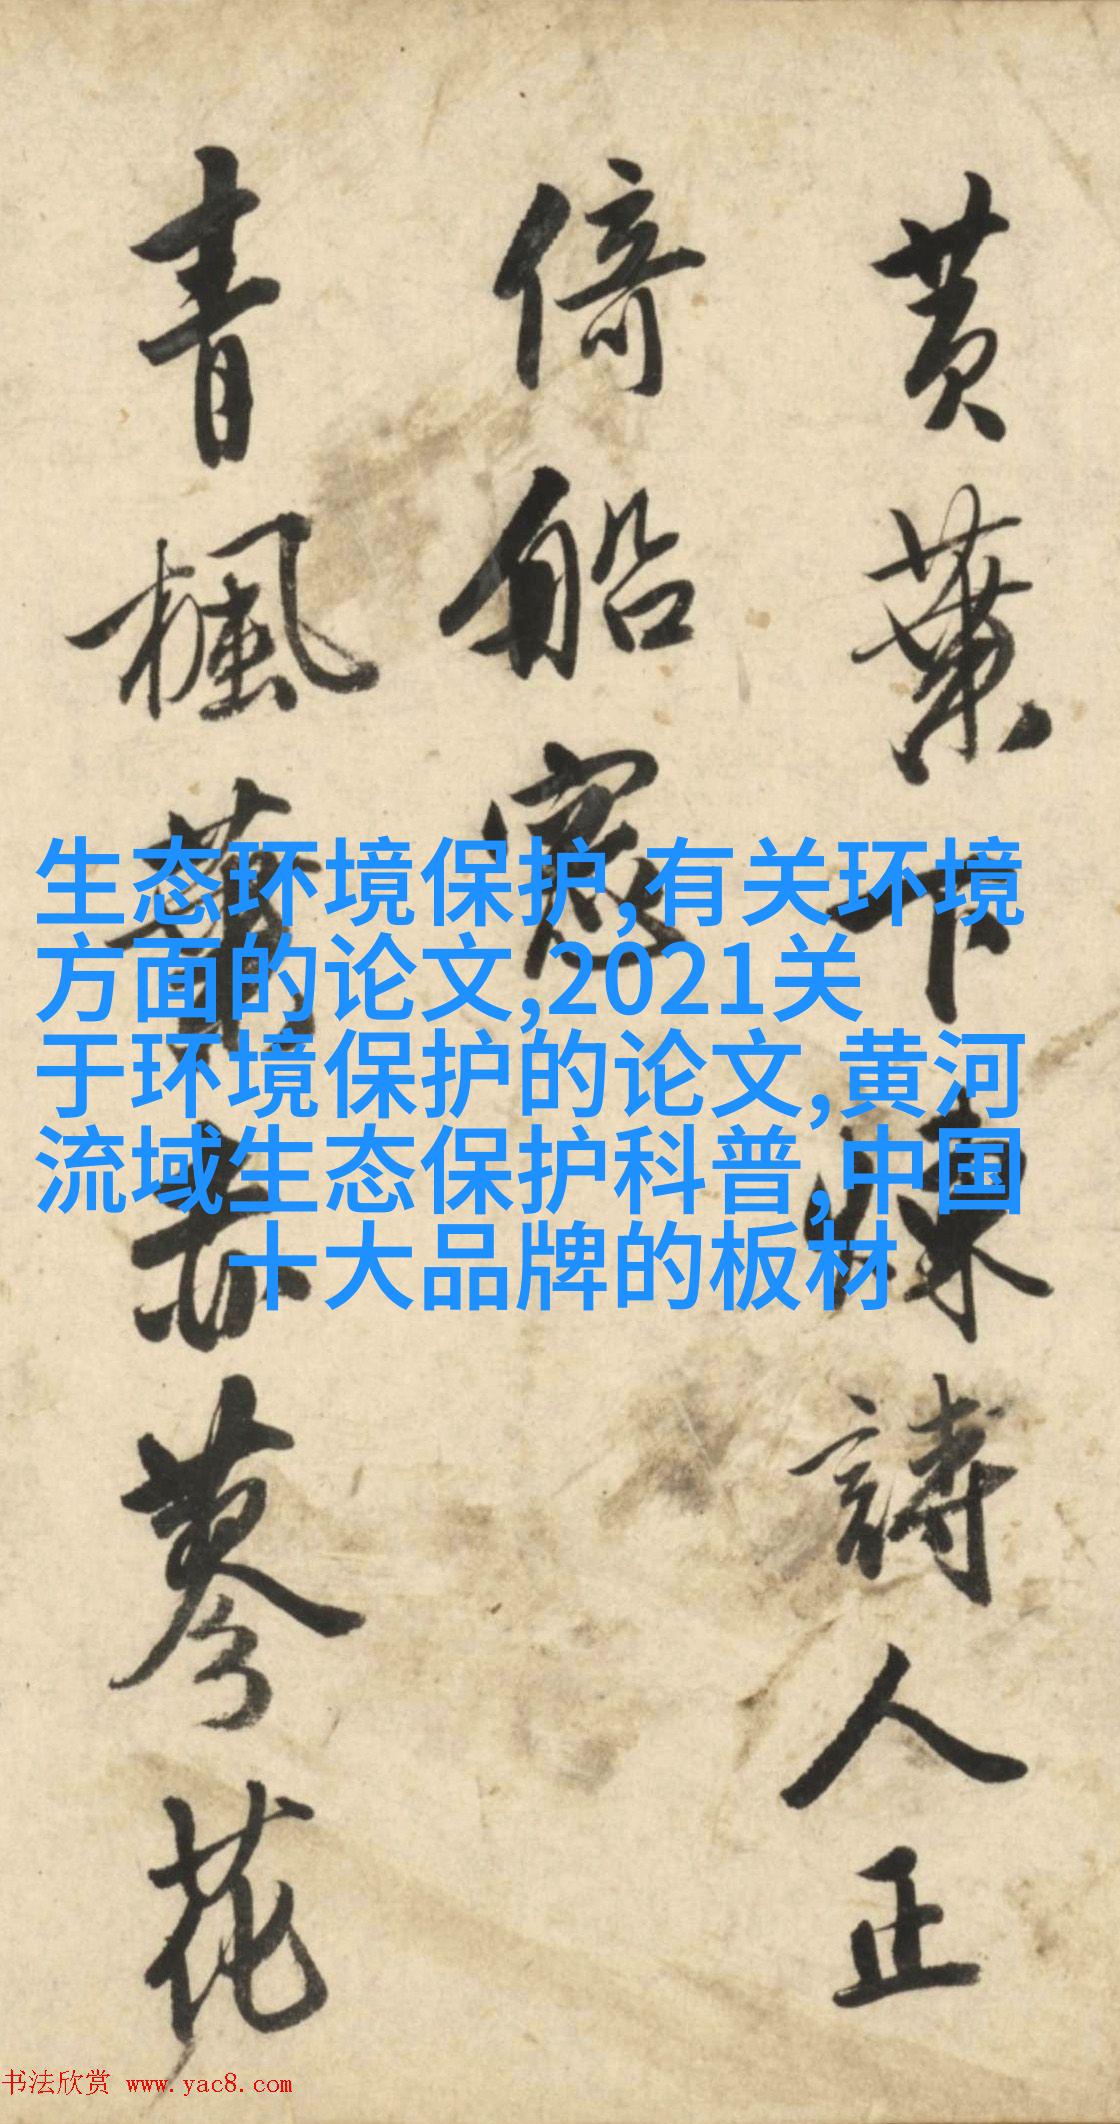 黄葉下陳詩人正
倚船窓
青楓葉赤蓼花
生态环境保护,有关环境
方面的论文,2021关
于环境保护的论文,黄河
流域生态保护科普,中国
十大品牌的板材
书法欣赏 www.yac8.com